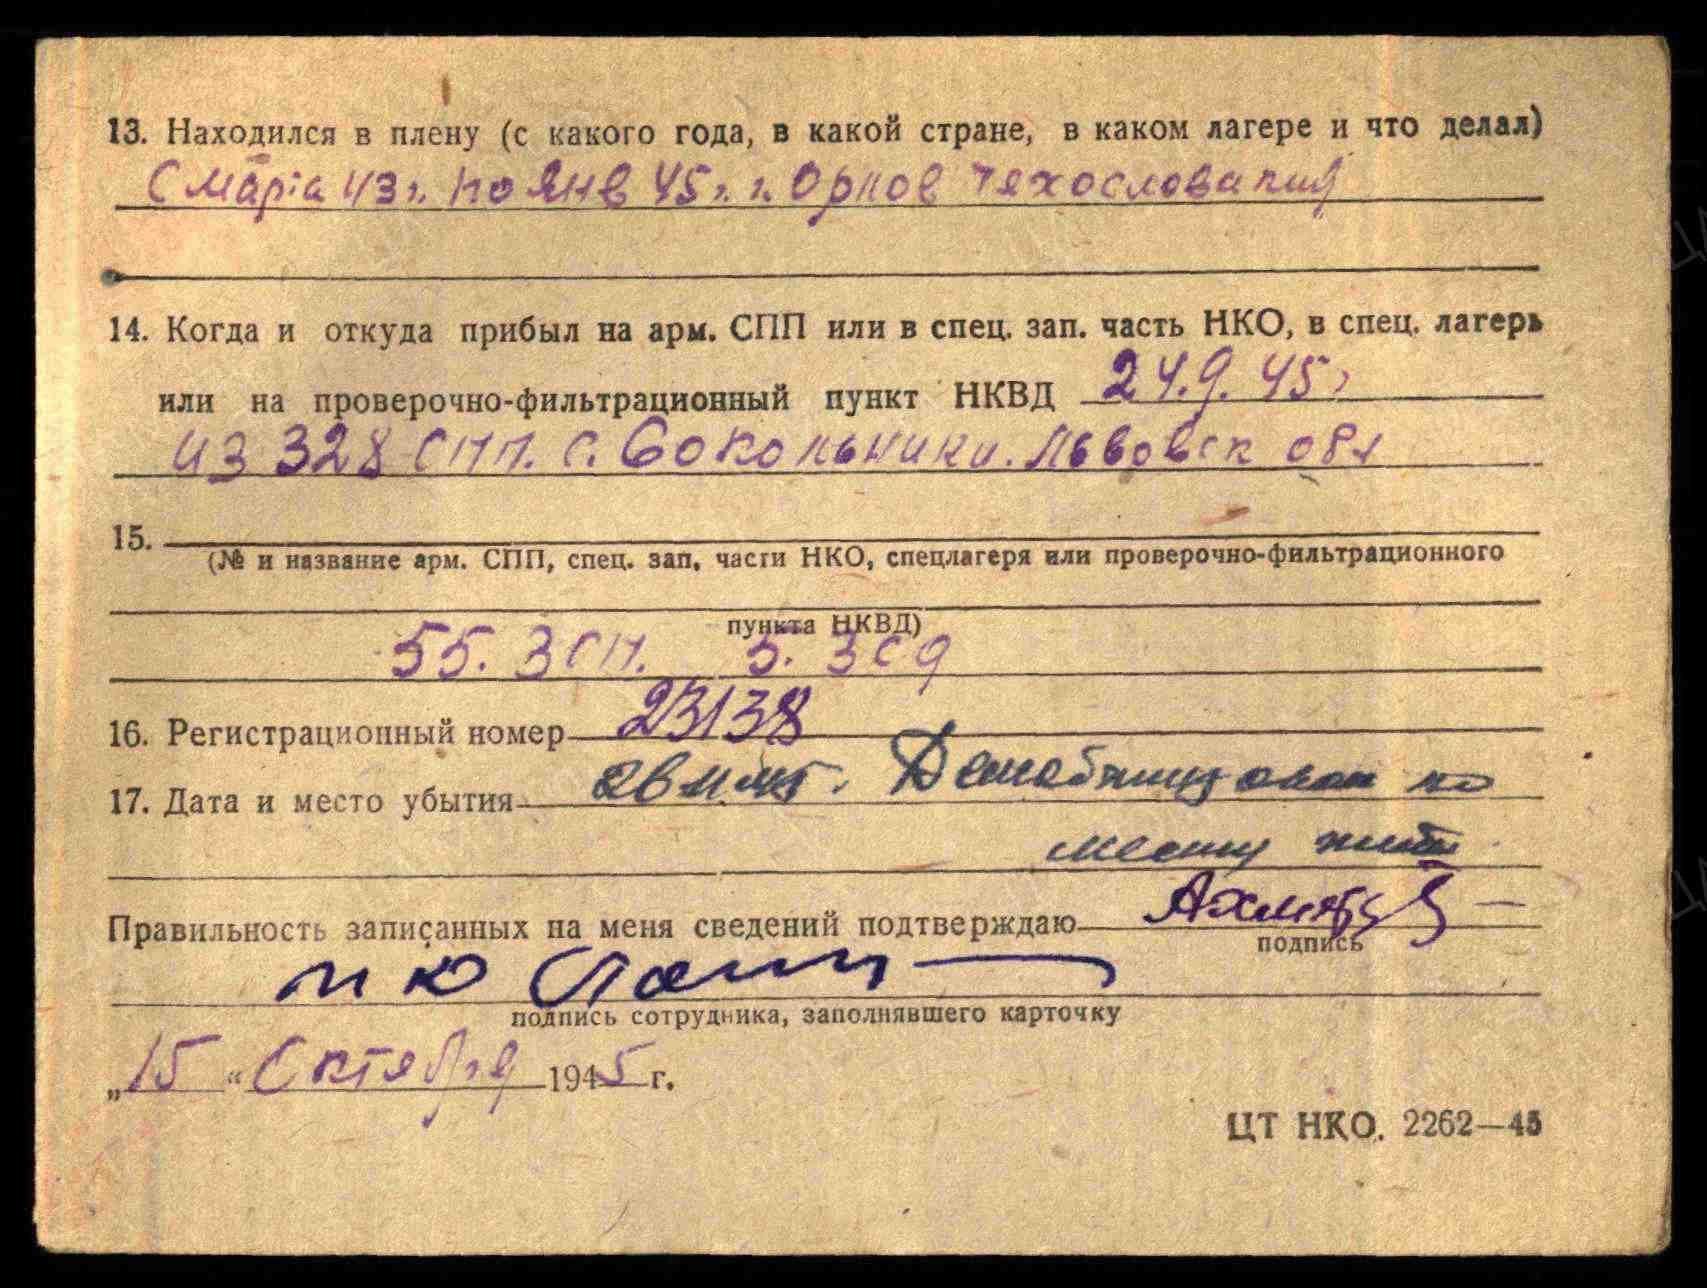 13. Находился в плену (с какого года, в какой стране, в каком лагере и что делал)
С Марта 43 г. по Янв 45 г. г. Орлов Чехословакия
14. Когда и откуда прибыл на арм. СПП или в спец. зап. часть НКО, в спец. лагерь
или на проверочно-фильтрационный пункт НКВД 24.9.45 г
из 328 СПП. с. Сокольники. Львовск обл
15.
(№ и название арм. СПП, спец. зап. части НКО, спецлагеря или проверочно-фильтрационного
пункта НКВД)
55. Зсп. 5. Зсд
16. Регистрационный номер 23138
17. Дата и место убытия Демобилизован по
месту жит
Правильность записанных на меня сведений подтверждаю
подпись
подпись сотрудника, заполнявшего карточку
„15“ Октября 1945 г.
ЦТ НКО. 2262—45